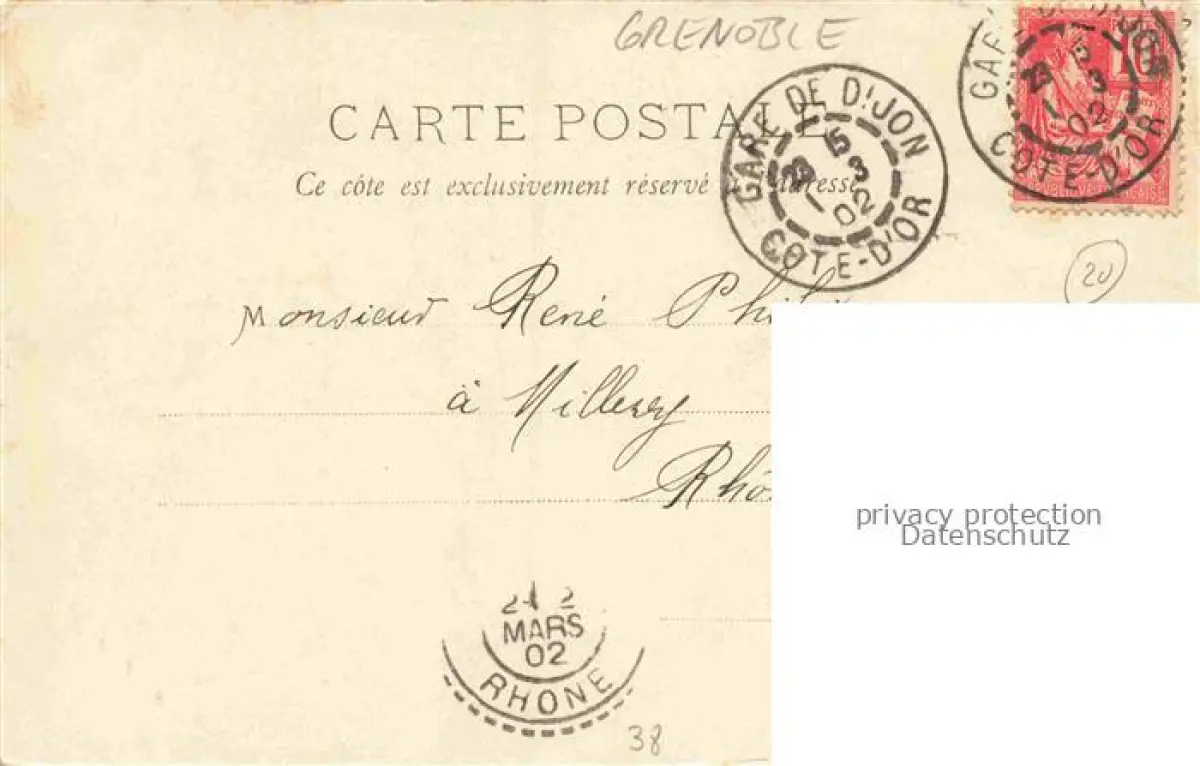 GRENOBLE
CARTE POSTALE
Ce côte est exclusivement réservé
GARE DE DIJON
23 1
5
3
02
COTE-D'OR
GARE DE DIJON
23 1
5
3
02
COTE-D'OR
10
20
Monsieur René
à Millery
privacy protection
Datenschutz
MARS
02
RHONE
38